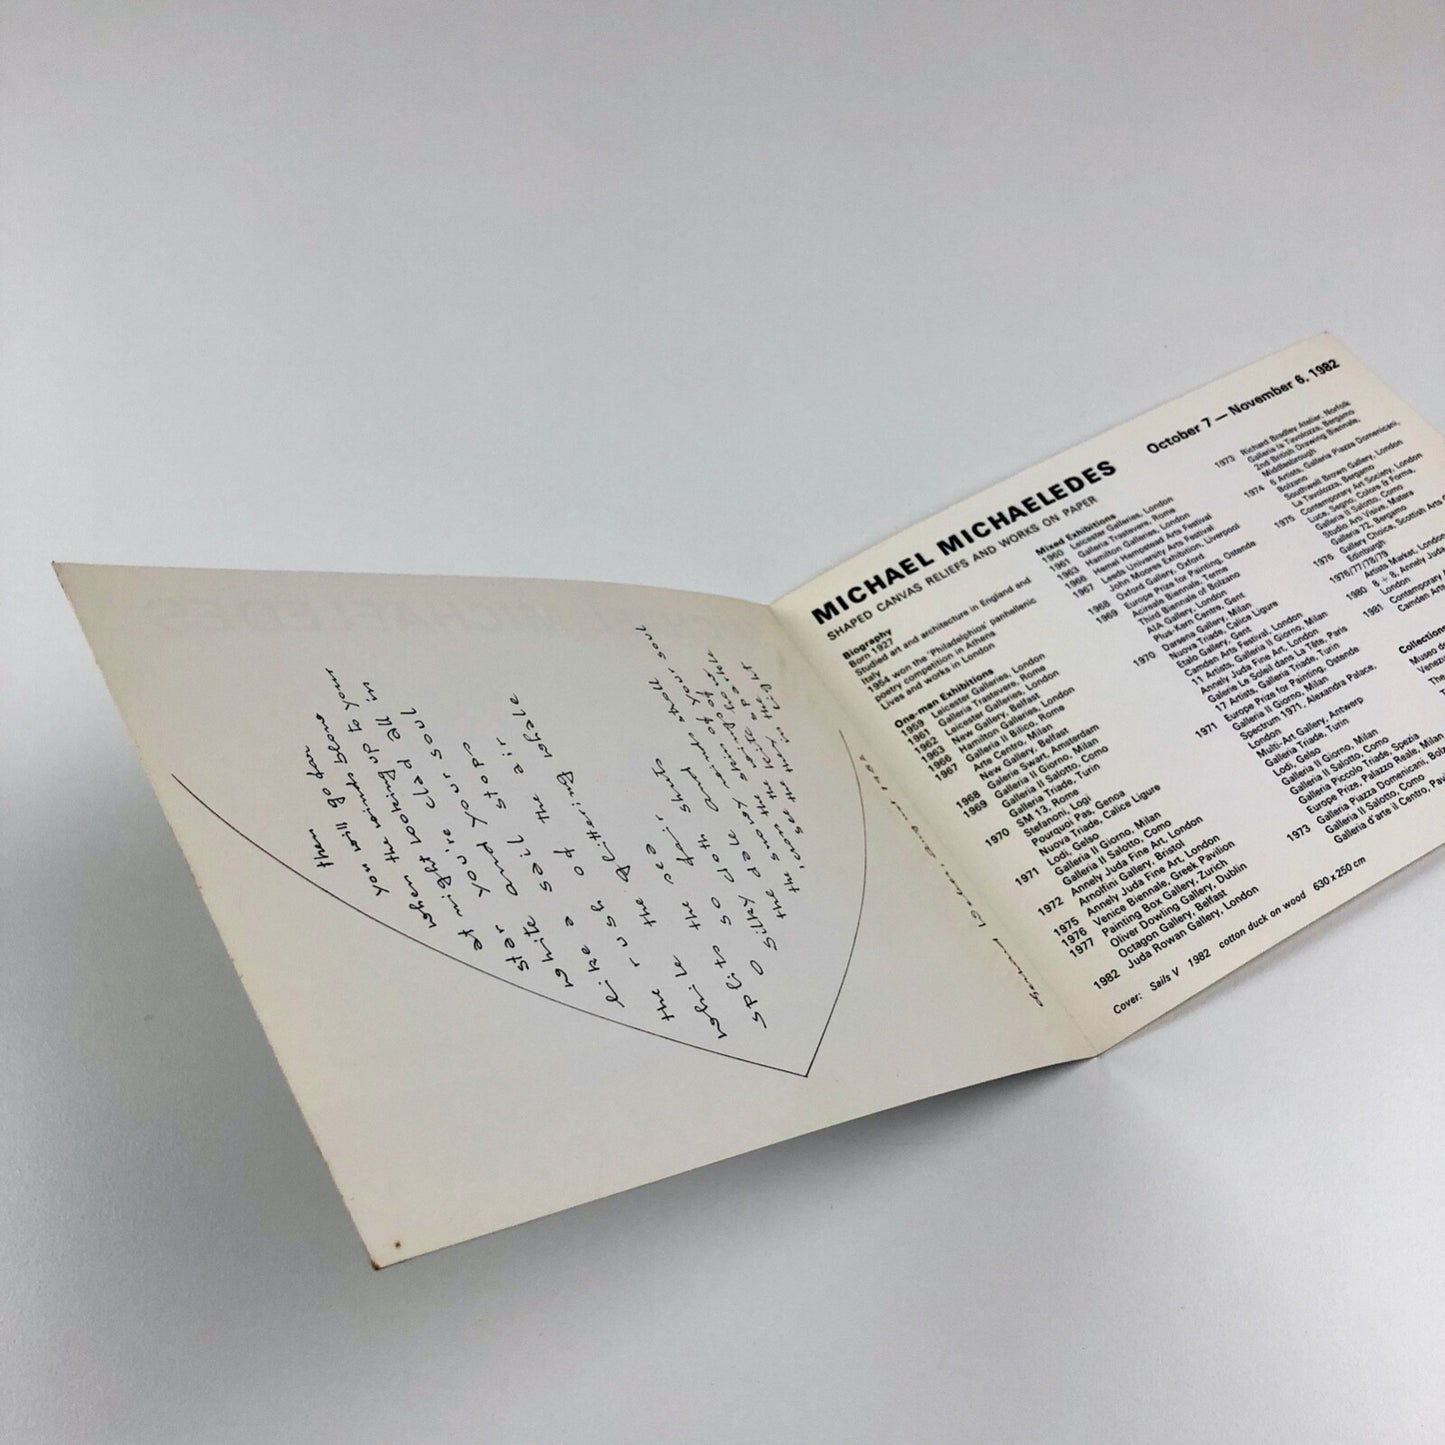 then
you will go far
when the winds blow
at night looking up to your
star and you're clad all in
white sail your soul
like a and stop
the rush of the air
while the glittering whale
split so the sea
silky cloth fair shuts
MICHAEL MICHAELEDES
October 7 — November 6, 1982
SHAPED CANVAS RELIEFS AND WORKS ON PAPER
Biography
Born 1927
Studied art and architecture in England and
Italy
1954 won the 'Philadelphios' panhellenic
poetry competition in Athens
Lives and works in London
One-man Exhibitions
1959 Leicester Galleries, London
1961 Galleria Trastevere, Rome
1962 Leicester Galleries, London
1963 New Gallery, Belfast
1966 Hamilton Galleries, London
1967 Galleria Il Bilico, Rome
Arte Centro, Milan
New Gallery, Belfast
1968 Galerie Swart, Amsterdam
1969 Galleria Il Giorno, Milan
Galleria Il Salotto, Como
Galleria Triade, Turin
1970 SM 13, Rome
Stefanoni, Logi
Pourquoi Pas, Genoa
Nuova Triade, Calice Ligure
Lodi, Gelso
1971 Galleria Il Giorno, Milan
Galleria Il Salotto, Como
Annely Juda Fine Art, London
1972 Arnolfini Gallery, Bristol
1975 Annely Juda Fine Art, London
1976 Venice Biennale, Greek Pavilion
1977 Painting Box Gallery, Zurich
Oliver Dowling Gallery, Dublin
Octagon Gallery, Belfast
1982 Juda Rowan Gallery, London
Mixed Exhibitions
1960 Leicester Galleries, London
1961 Galleria Trastevere, Rome
1963 Hamilton Galleries, London
1966 Hemel Hempstead Arts Festival
1967 Leeds University Arts Festival
John Moores Exhibition, Liverpool
1968 Oxford Gallery, Oxford
1969 Europe Prize for Painting, Ostende
Acireale Biennale, Terme
Third Biennale of Bolzano
AIA Gallery, London
Plus-Kern Centre, Gent
1970 Darsena Gallery, Milan
Nuova Triade, Calice Ligure
Etalo Gallery, Gent
Camden Arts Festival, London
11 Artists, Galleria Il Giorno, Milan
Annely Juda Fine Art, London
Galerie Le Soleil dans La Tête, Paris
17 Artists, Galleria Triade, Turin
1971 Europe Prize for Painting, Ostende
Galleria Il Giorno, Milan
Spectrum 1971, Alexandra Palace,
London
Multi-Art Gallery, Antwerp
Galleria Triade, Turin
Lodi, Gelso
Galleria Il Giorno, Milan
Galleria Il Salotto, Como
Galleria Piccolo Triade, Spezia
Europe Prize, Palazzo Reale, Milan
1973 Galleria Piazza Domenicani,
Galleria Il Salotto, Como
Galleria d'arte il Centro,
1973 Richard Bradley Atelier, Norfolk
Galleria la Tavolozza, Bergamo
2nd British Drawing Biennale,
Middlesbrough
1974 6 Artists, Galleria Piazza Domenicani,
Bolzano
Southwell Brown Gallery, London
La Tavolozza, Bergamo
1975 Contemporary Art Society, London
Luce, Segno, Colore & Forma,
Galleria Il Salotto, Como
Studio Arti Visive, Matera
Galleria 72, Bergamo
1976 Gallery Choice, Scottish Arts
Edinburgh
1976/77/78/79
Artists Market, London
1980 6 + 6, Annely Juda
London
1981 Contemporary
Camden Arts
Collections
Museo
The
Cover: Sails V 1982 cotton duck on wood 630 x 250 cm